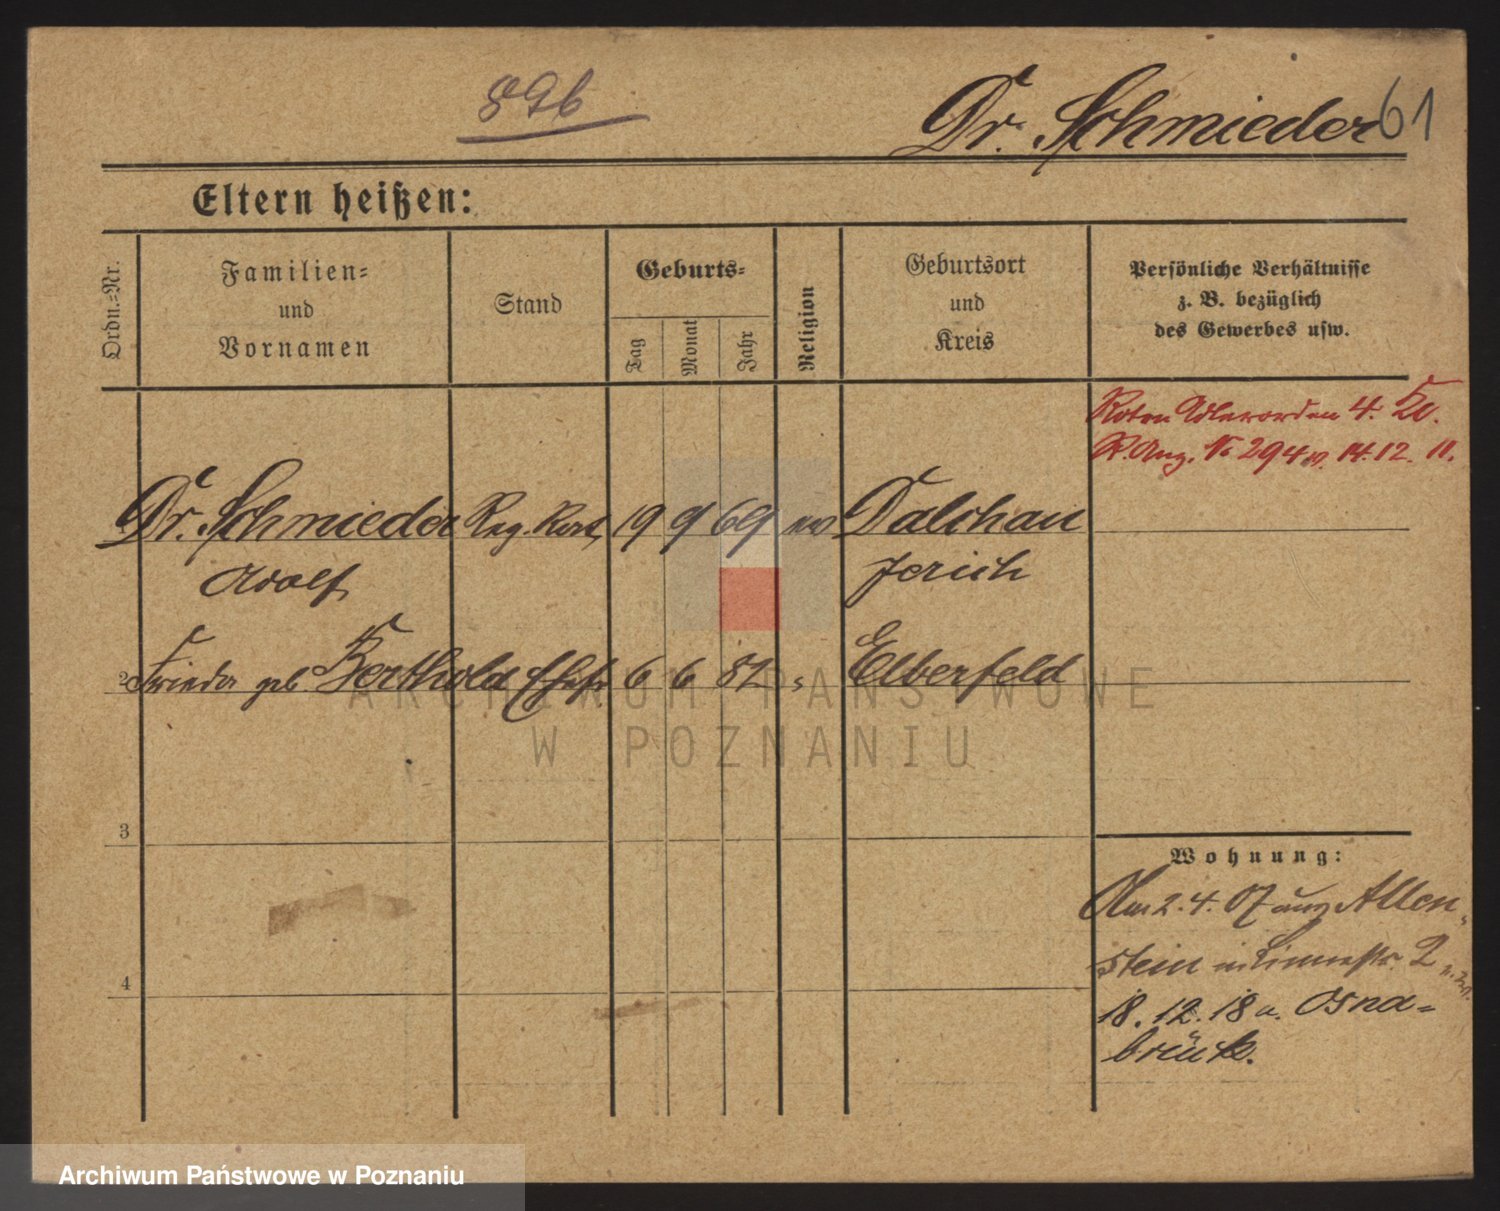 896
Dr. Schmieder 61
Eltern heißen:
Ordn.=Nr.
Familien=
und
Vornamen
Stand
Geburts=
Tag
Monat
Jahr
Religion
Geburtsort
und
Kreis
Persönliche Verhältnisse
z. B. bezüglich
des Gewerbes usw.
Roten Adlerorden 4. Kl.
R. Anz. № 294 v. 14.12.11.
Dr. Schmieder Reg. Rat 19 9 69 ev Dalchau
Adolf Jerich
2 Frieda geb. Berthold Ehefr 6 6 82 " Elberfeld
3
Wohnung:
Am 2.4.07 aus Allen-
stein in Linnestr. 2
18.12.18 n. Osna=
brück.
4
ARCHIWUM PAŃSTWOWE
W POZNANIU
Archiwum Państwowe w Poznaniu